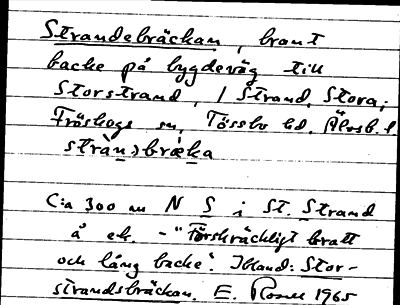 Strandebräckan, brant
backe på bygdeväg till
Storstrand, / Strand, Stora,
Fröskogs sn, Tössbo hd. Älvsb. l
strànɔbræka
C:a 300 m N S i St. Strand
å ek. - "Förskräckligt bratt
och lång backe". Ibland: Stor-
strandsbräckan. E. 1965